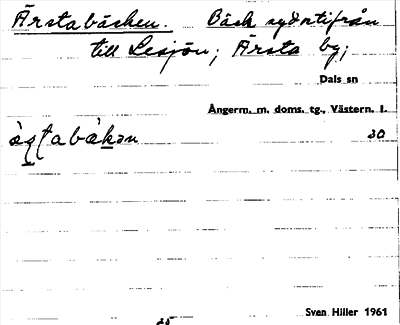 Ärstabäcken. Bäck sydostifrån
till Lesjön; Ärsta by;
Dals sn
Ångerm. m. doms. tg., Västern. l.
30
Sven Hiller 1961
25